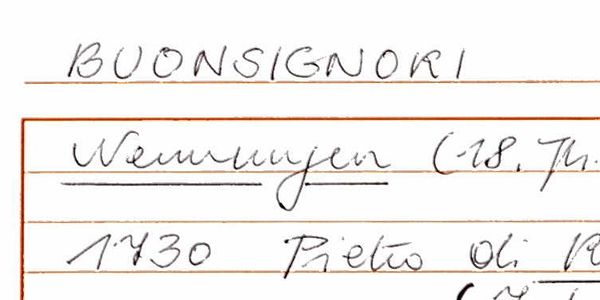 BUONSIGNORI
Nennungen (18. Jh.
1730 Pietro di